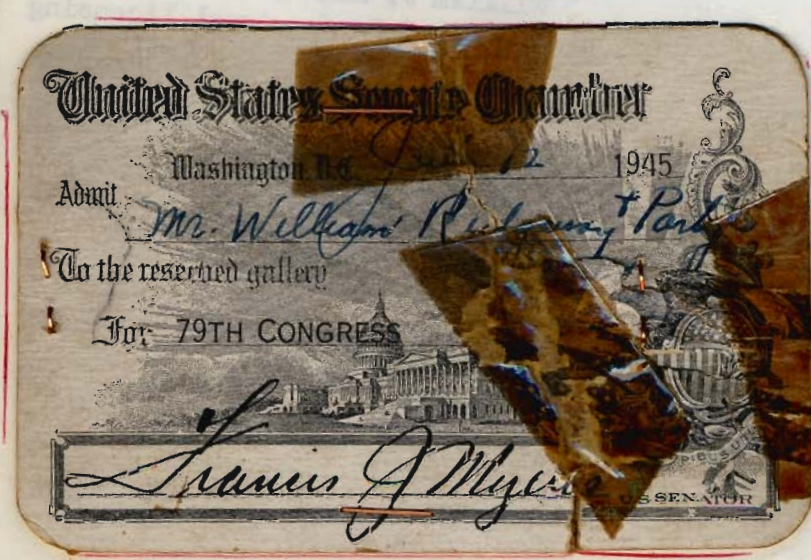 United States Senate Chamber
Washington D.C. 12 1945
Admit
Mr. William Ridgway & Party
To the reserved gallery
For 79TH CONGRESS
Francis J Myers
U.S. SENATOR